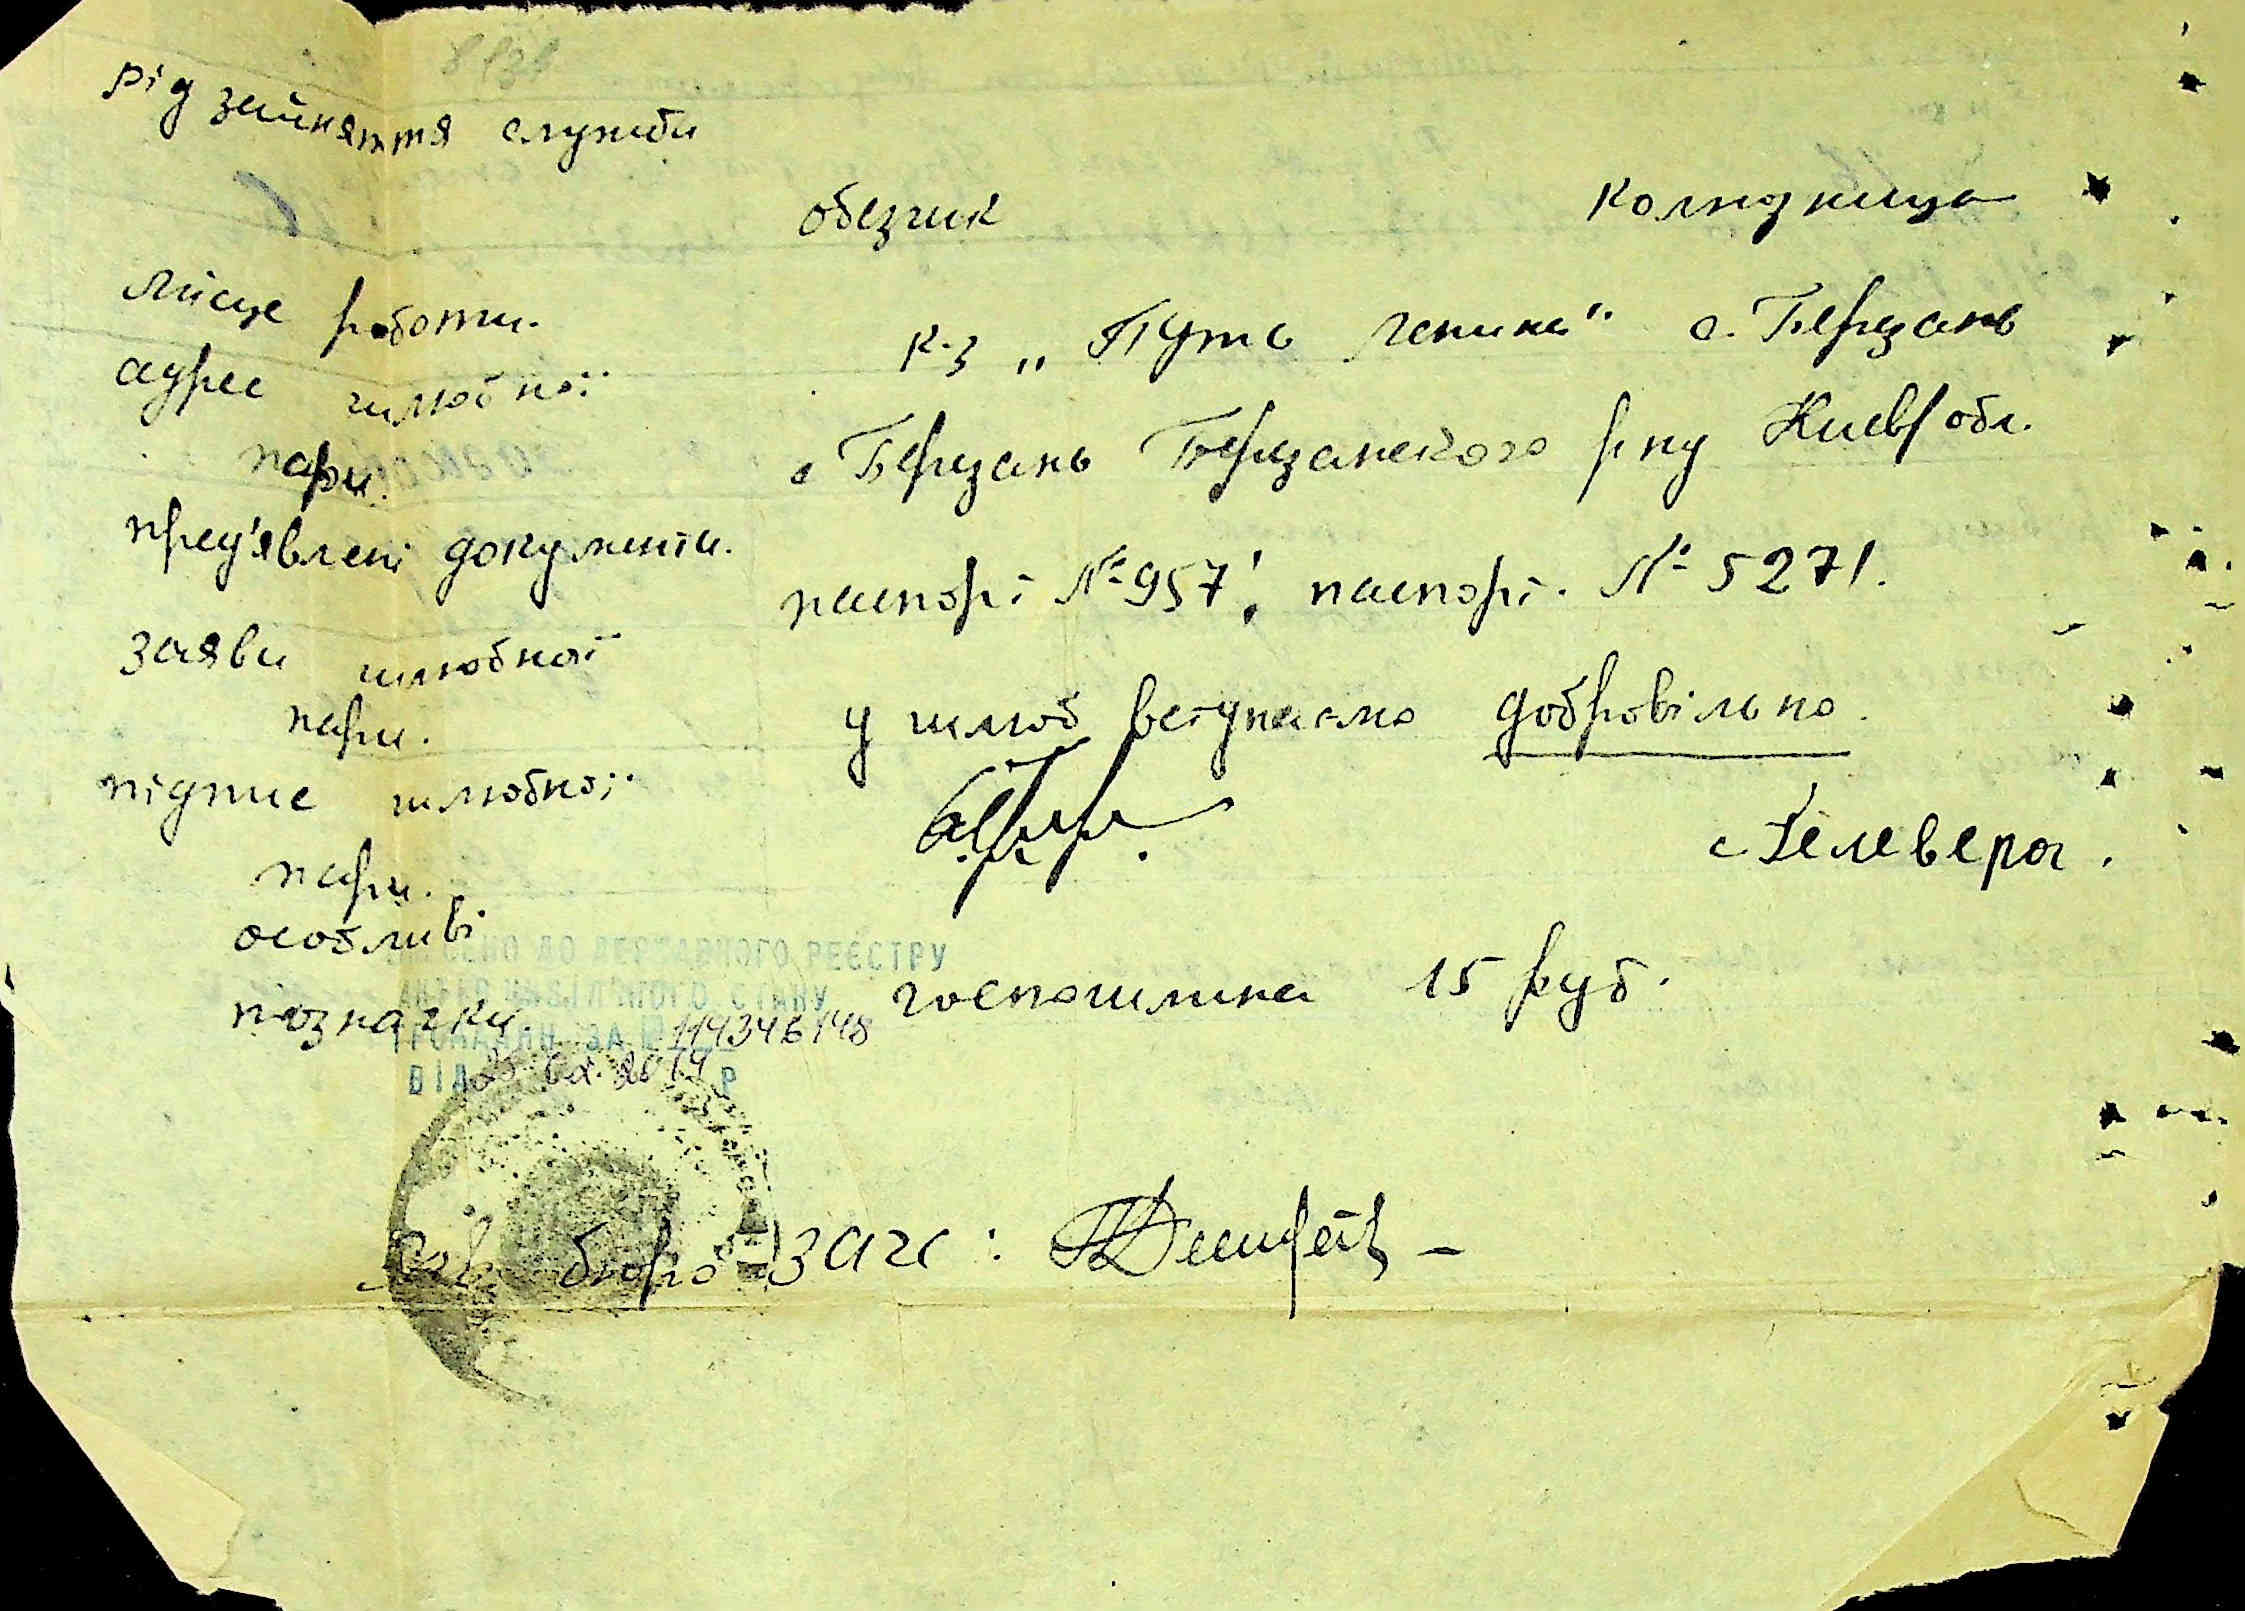 рід зайняття служби
обєзчик колгозниця
місце роботи.
к-з „Путь Леніна" с. Березань
адрес шлюбної
пари.
с Березань Березанського р-ну Київ/обл.
пред'явлені документи.
паспорт № 957; паспорт. № 5271.
заяви шлюбної
пари.
у шлюб вступаємо добровільно.
підпис шлюбної
пари.
Телевера.
особливі
позначки.
госпошлина 15 руб.
ВНЕСЕНО ДО ДЕРЖАВНОГО РЕЄСТРУ
АКТІВ ЦИВІЛЬНОГО СТАНУ
ГРОМАДЯН ЗА № 114346148
ВІД 25.02.2014 Р
Зав. бюро ЗАГС: